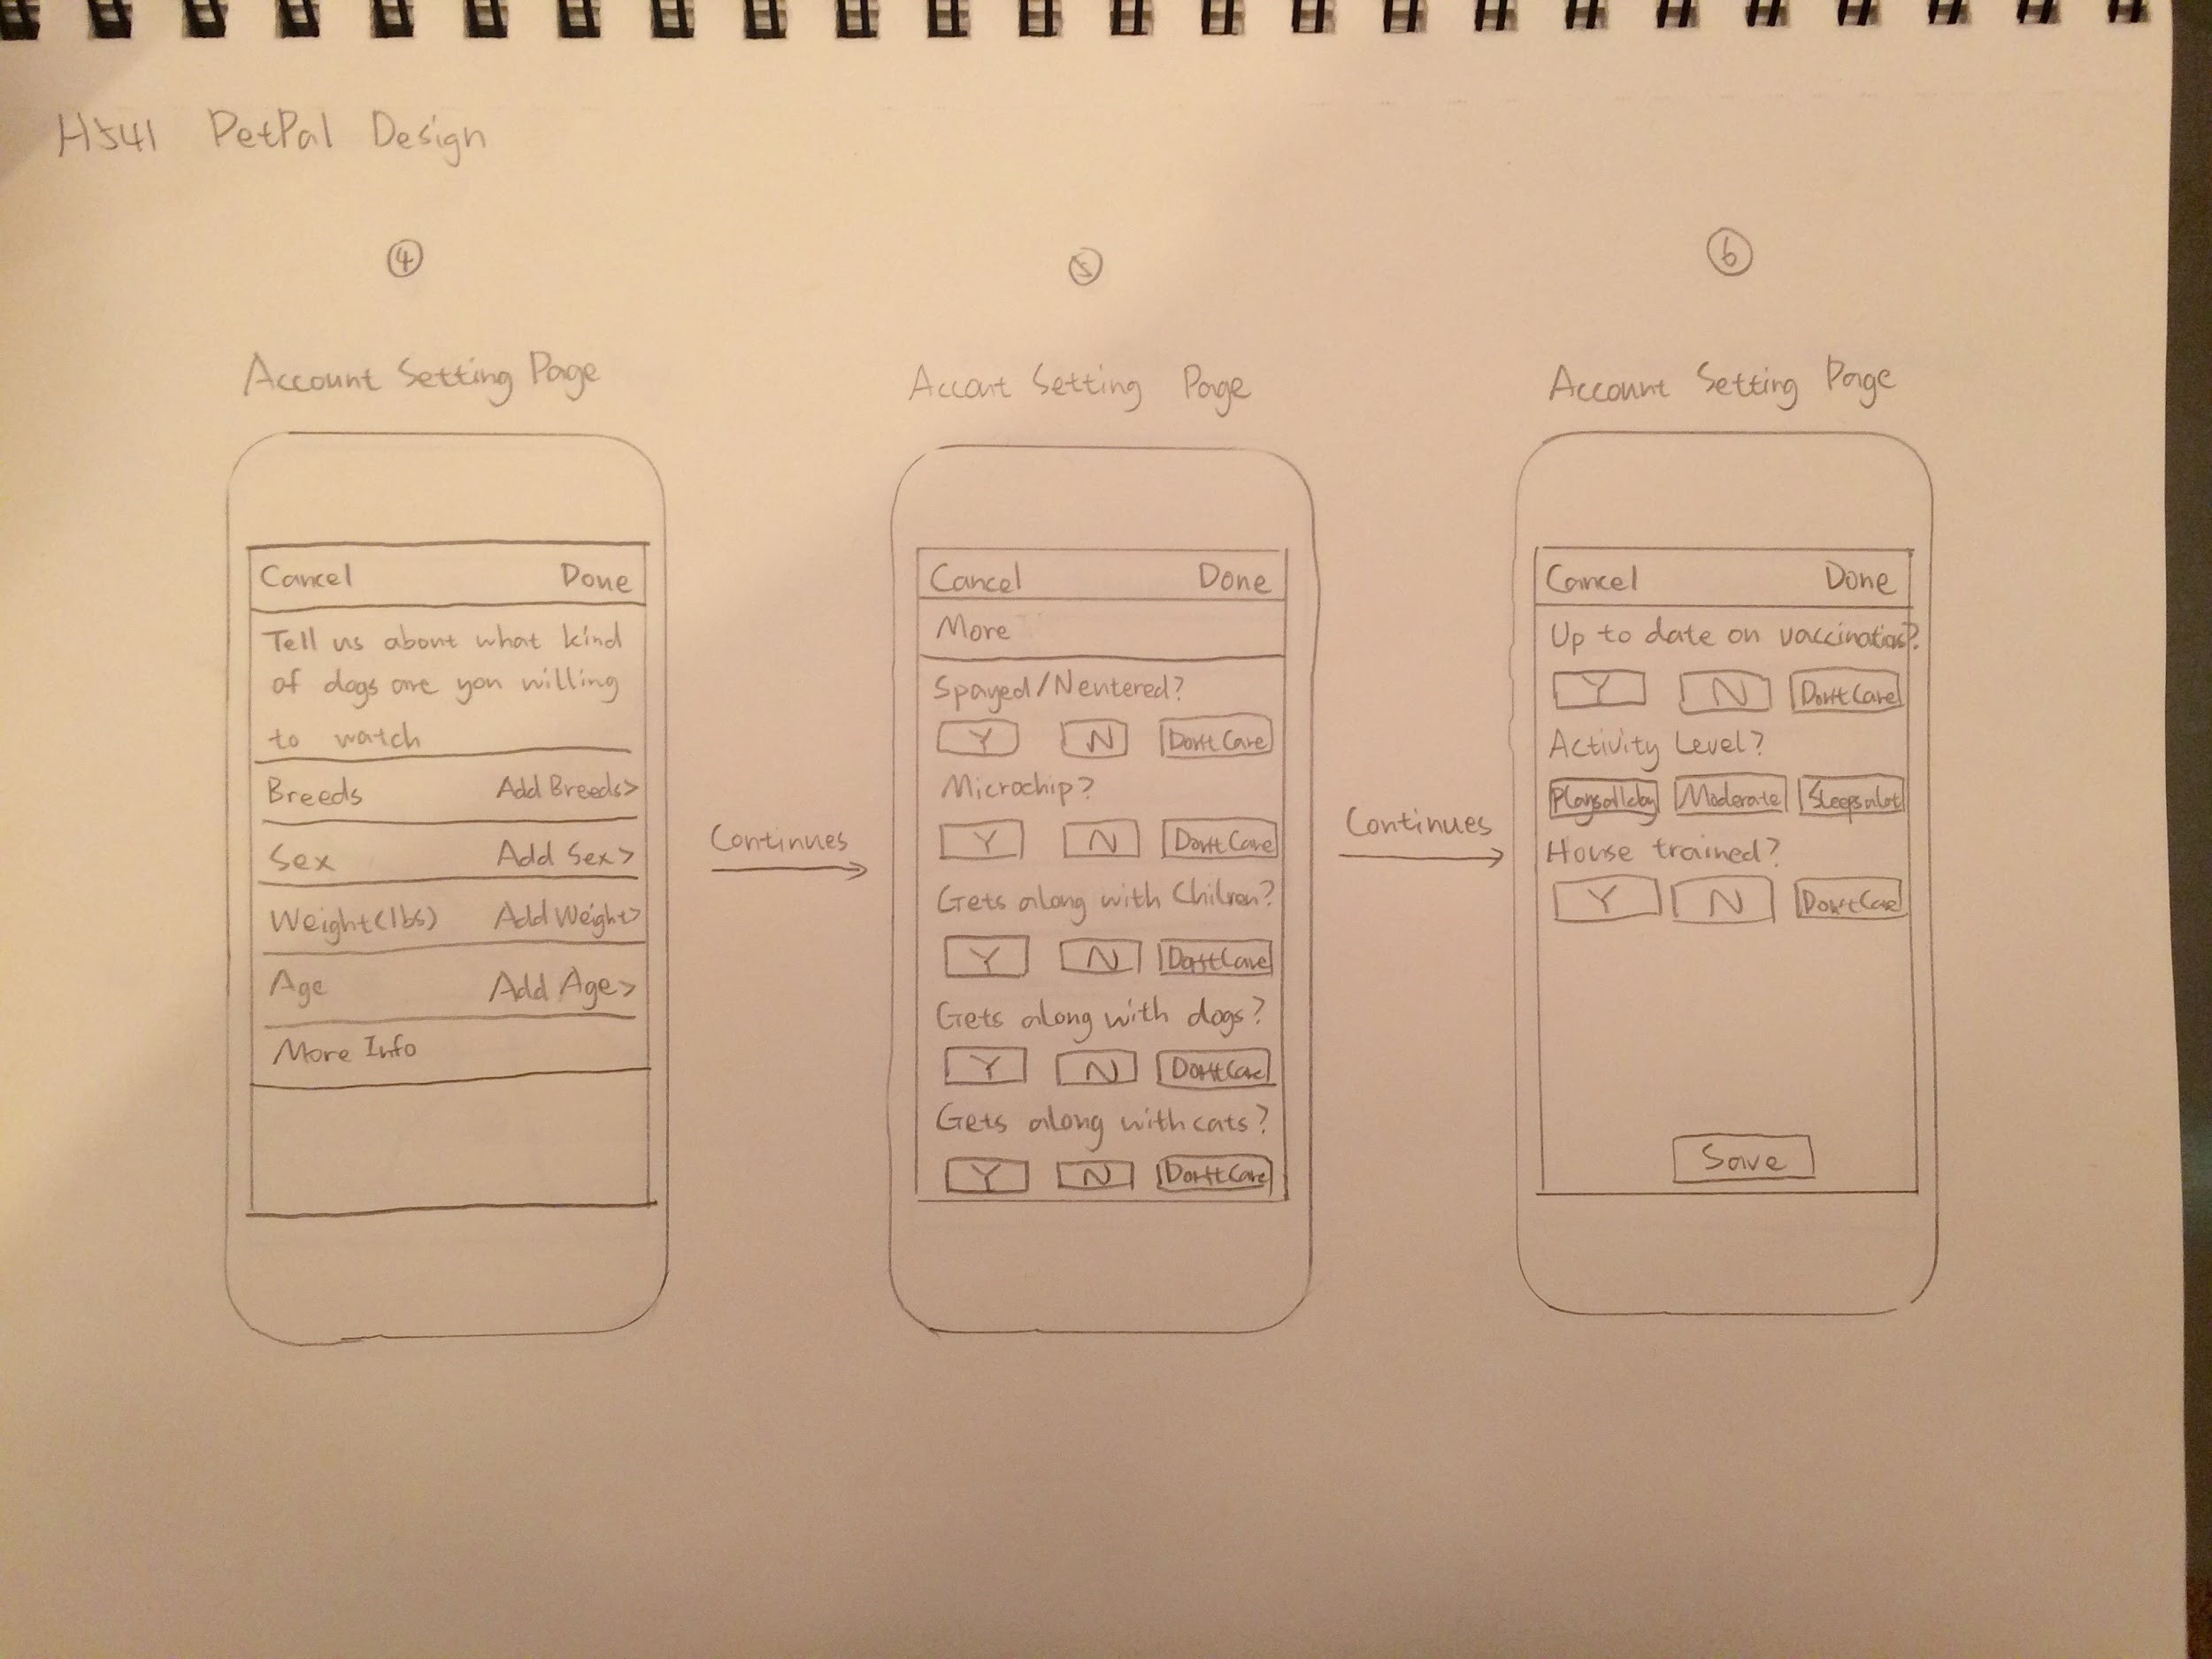 H541 PetPal Design
④
Account Setting Page
Cancel Done
Tell us about what kind
of dogs are you willing
to watch
Breeds Add Breeds>
Sex Add Sex>
Weight(lbs) Add Weight>
Age Add Age>
More Info
Continues
⑤
Accont Setting Page
Cancel Done
More
Spayed/Neutered?
Y N Don't Care
Microchip?
Y N Don't Care
Gets along with Chilren?
Y N Don't Care
Gets along with dogs?
Y N Don't Care
Gets along with cats?
Y N Don't Care
Continues
⑥
Account Setting Page
Cancel Done
Up to date on vaccinations?
Y N Don't Care
Activity Level?
Plays all day Moderate Sleeps a lot
House trained?
Y N Don't Care
Save